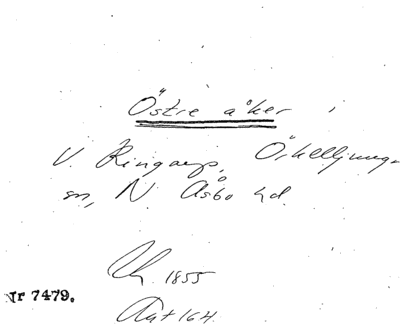 Östre åker i
V. Ringarp, Örkelljunga
sn, N Åsbo hd.
1855
Nr 7479.
164